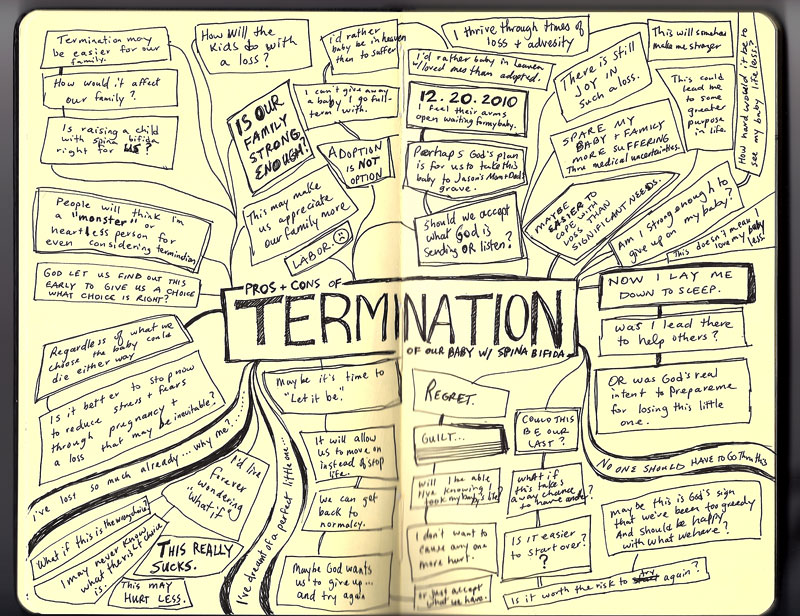 Termination may
be easier for our
family.
How would it affect
our family?
Is raising a child
with spina bifida
right for us?
People will think I'm
a "monster" or
heartless person for
even considering termination
GOD LET US FIND OUT THIS
EARLY TO GIVE US A CHOICE
WHAT CHOICE IS RIGHT?
How Will the
Kids do with
a loss?
IS OUR
FAMILY
STRONG
ENOUGH?
This may make
us appreciate
our family more
LABOR.
I'd rather
baby be in heaven
than to suffer
I can't give away
a baby I go full-
term with.
ADOPTION
IS NOT
OPTION
I thrive through times of
loss + adversity
I'd rather baby in heaven
w/loved me than adopted.
12.20.2010
I feel their arms
open waiting for my baby.
Perhaps God's plan
is for us to take this
baby to Jason's Mom+Dad's
grave.
should we accept
what God is
sending OR listen?
There is still
JOY IN
such a loss.
SPARE MY
BABY + FAMILY
MORE SUFFERING
Thru medical uncertainties.
MAYBE
EASIER TO
COPE WITH
LOSS THAN
SIGNIFICANT NEEDS.
This will somehow
make me stronger
This could
lead me
to some
greater
purpose
in life.
How hard would it be to
see my baby life less?
Am I strong enough to
give up on my baby?
This doesn't mean
I love my baby
less.
PROS + CONS OF
TERMINATION
OF OUR BABY W/ SPINA BIFIDA
NOW I LAY ME
DOWN TO SLEEP.
was I lead there
to help others?
OR was God's real
intent to Prepare me
for losing this little
one.
NO ONE SHOULD HAVE TO GO Thru this
maybe this is God's sign
that we've been too greedy
And should be happy
with what we have?
Regardless of what we
choose the baby could
die either way
Is it better to stop now
to reduce stress + fears
through pregnancy +
a loss that may be inevitable?
I've lost so much already... why me?
I'd live
forever
wondering
"what if"
What if this is the wrong choice?
I may never know
what the right choice
is.
THIS REALLY
SUCKS.
THIS MAY
HURT LESS.
I've dreamt of a perfect little one...
Maybe it's time to
"Let it be."
It will allow
us to move on
instead of stop
life.
we can get
back to
normalcy.
Maybe God wants
us to give up...
and try again
REGRET.
GUILT...
Will I be able
live knowing I
took my baby's life?
I don't want to
cause any one
more hurt.
or just accept
what we have.
COULD THIS
BE OUR
LAST?
what if
this takes
away chance
to have another?
Is it easier
to start over?
?
Is it worth the risk to try again?